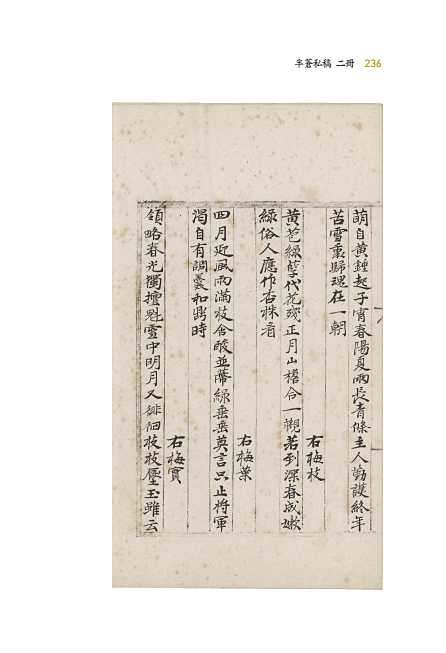 半蒼私稿 二冊 236
萌自黃鍾起子宵春陽夏雨長青條主人勤護終年
苦雪裏歸魂在一朝
右梅枝
黃苞綠孽代花殘正月山樊合一覩若到深春成嫩
綠俗人應作杏株看
右梅葉
四月迎風雨滿枝含酸並蒂綠垂垂莫言只止將軍
渴自有調羹和鼎時
右梅實
領略春光獨擅魁雪中明月又徘徊枝枝壓玉雖云